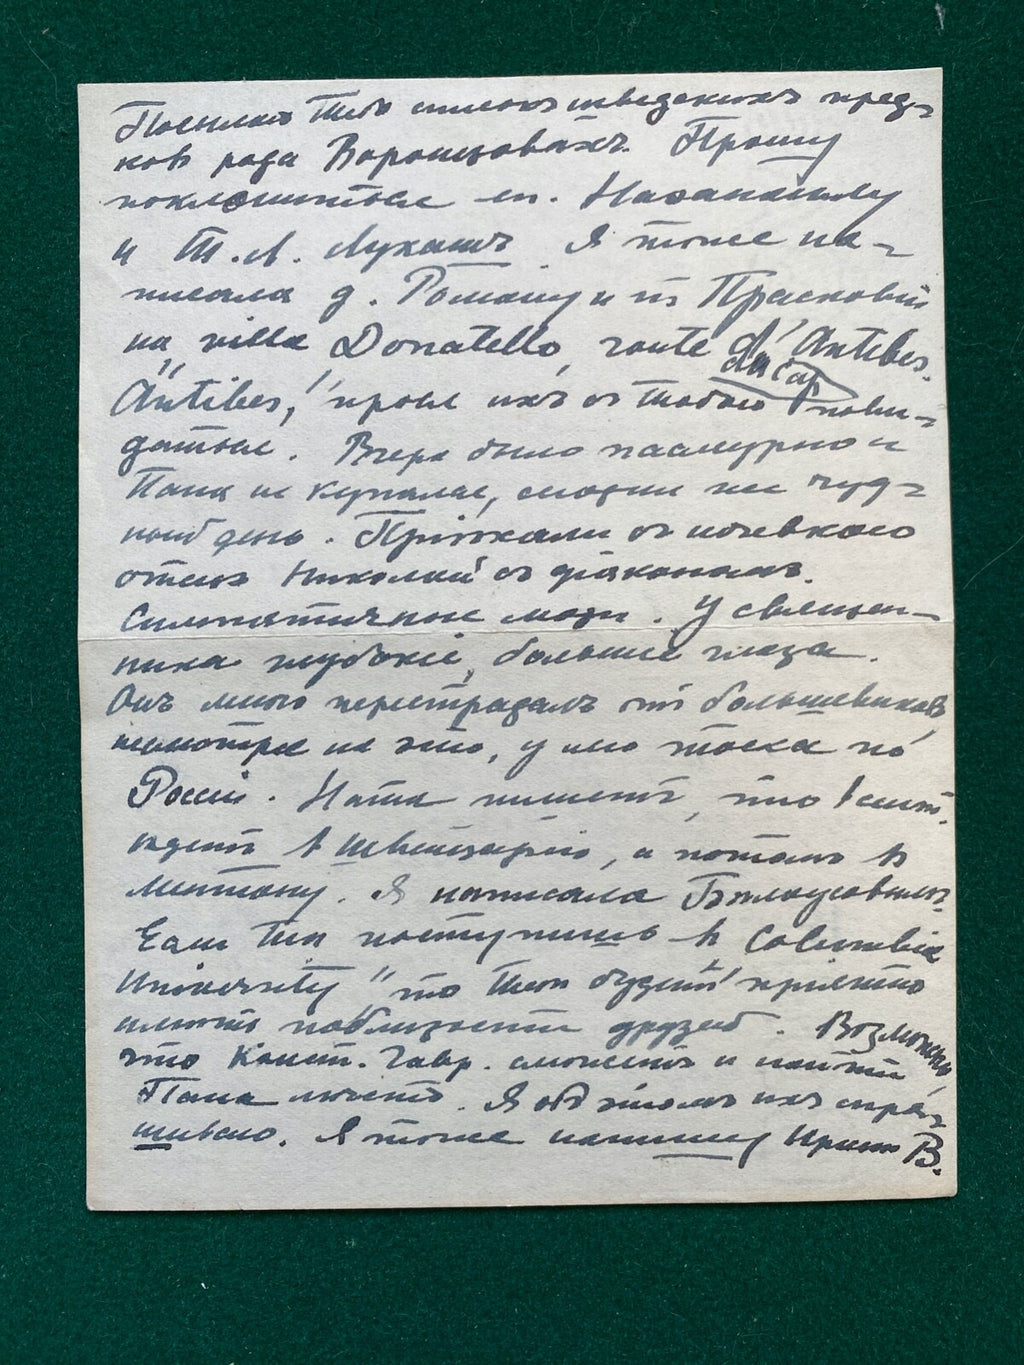 Посылаю Тебѣ списокъ шведскихъ пред-
ковъ рода Воронцовыхъ. Прошу
поклониться еп. Нафанаилу
и Т. Л. Лукашъ. Я тоже на-
писала д. Роману и тѣ Прасковьѣ
на villa Donatello, route d'Antibes.
Antibes, прося ихъ съ Тобою пови-
даться. Вчера было пасмурно и
Папа не купался, сегодня же чуд-
ный день. Пріѣхали съ ночевкою
отецъ Николай съ діакономъ.
Симпатичные люди. У священ-
ника глубокіе, большіе глаза.
Онъ много перестрадалъ отъ большевиковъ,
несмотря на это, у него тоска по
Россіи. Ната пишетъ, что в сент.
ѣдетъ в Швейцарію, а потомъ в
Ментону. Я написала Бѣлоусовымъ.
Если Ты поступишь в "Columbia
University" то Тебѣ будетъ пріятно
имѣть поблизости друзей. Возможно,
что Конст. Гавр. сможетъ и найти
Папа мѣсто. Я объ этомъ ихъ спра-
шиваю. Я тоже напишу Иринѣ В.